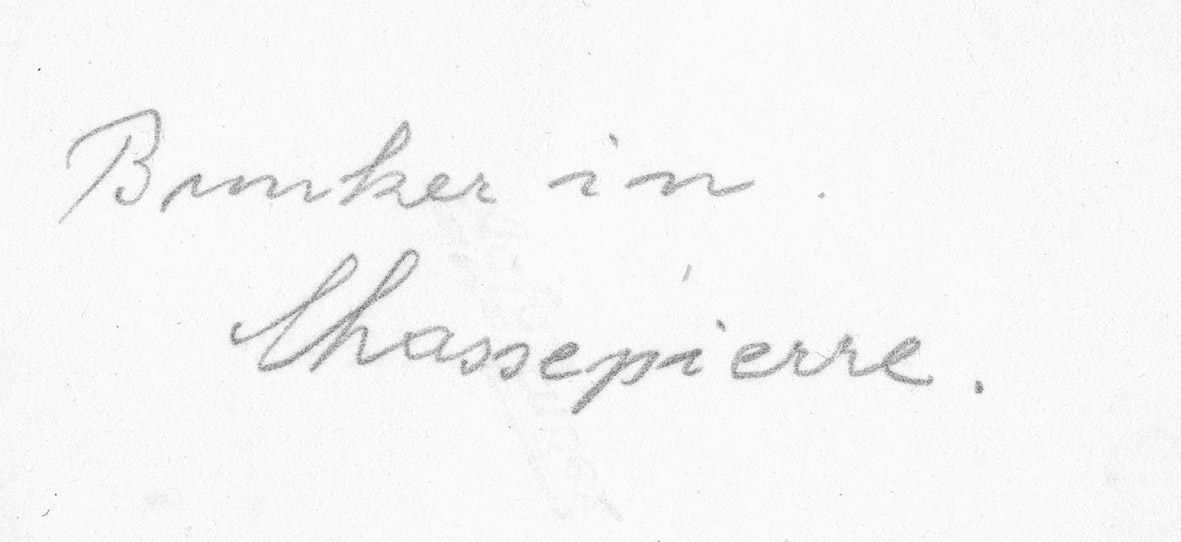 Bunker in.
Chassepierre.